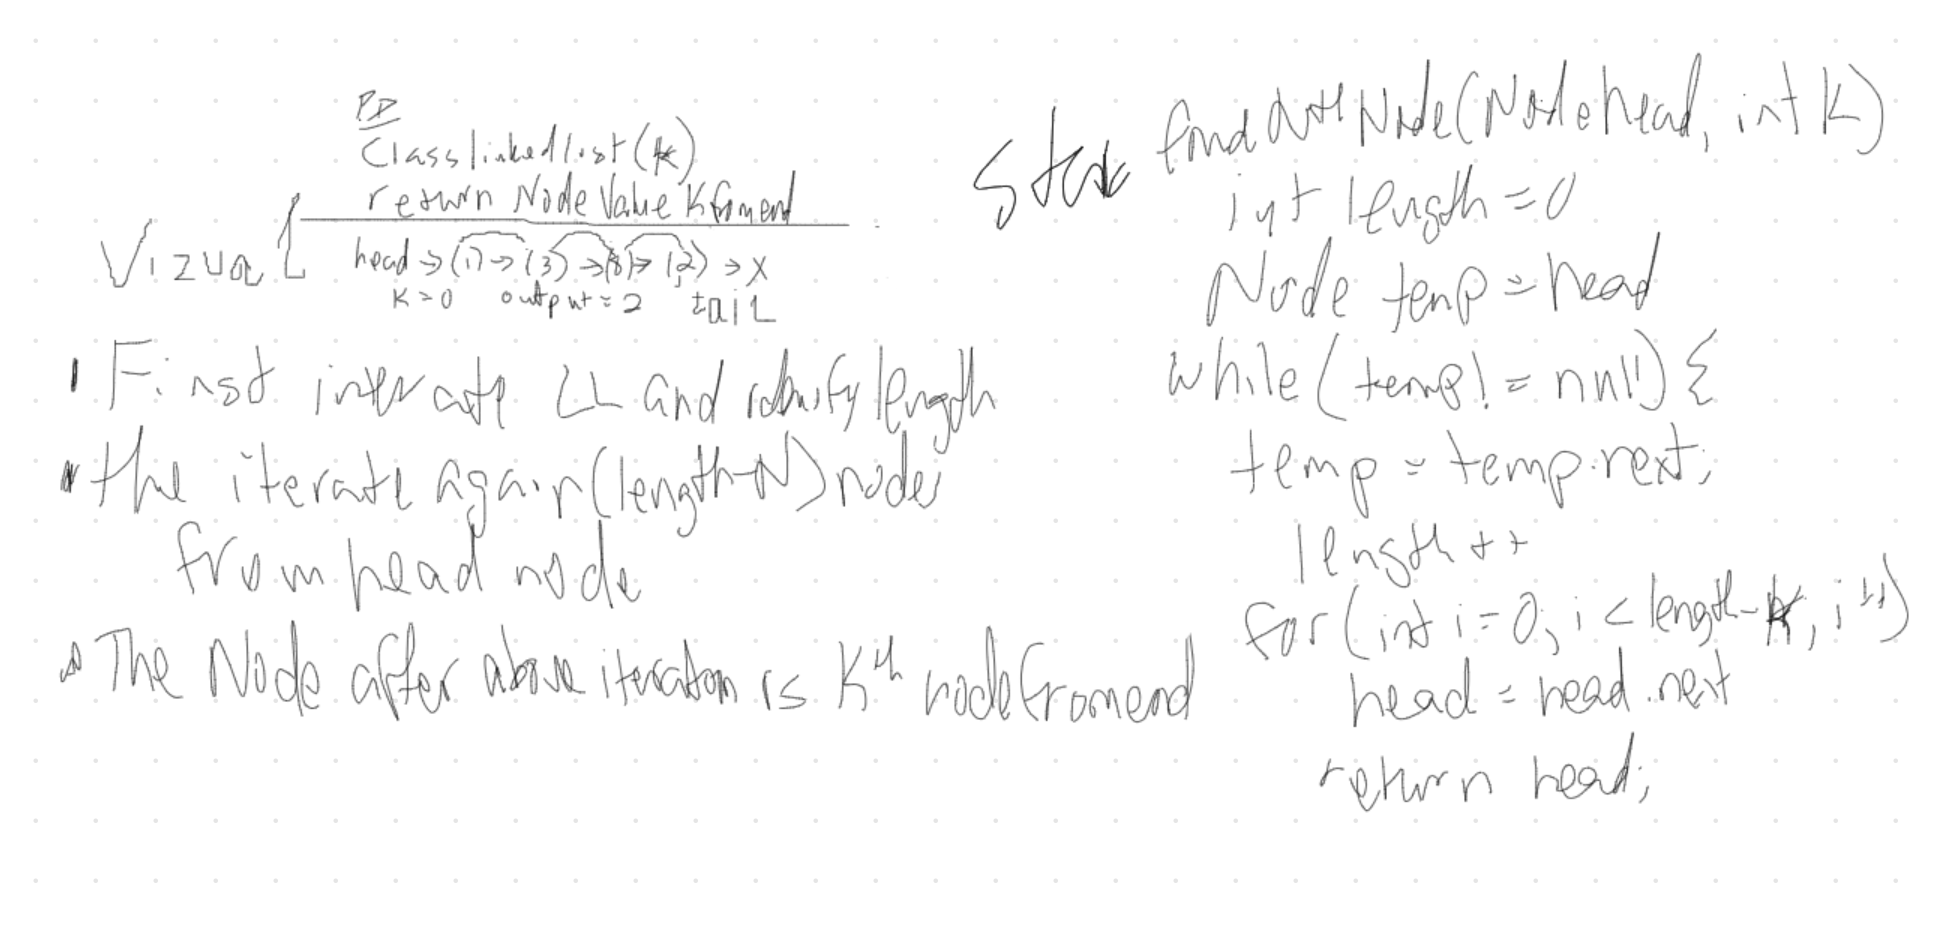 PD
Class linkedlist(k)
return Node Value K from end
Vizual
head → (1) → (3) → (8) → (2) → X
K = 0 output = 2 tail
First interate LL and length
the iterate again (length-N) nodes
from head node
The Node after above iteration is Kth node from end
find Node(Node head, int K)
int length = 0
Node temp = head
while (temp! = null) {
temp = temp.next;
length ++
for (int i = 0; i < length-K, i++)
head = head.next
return head;